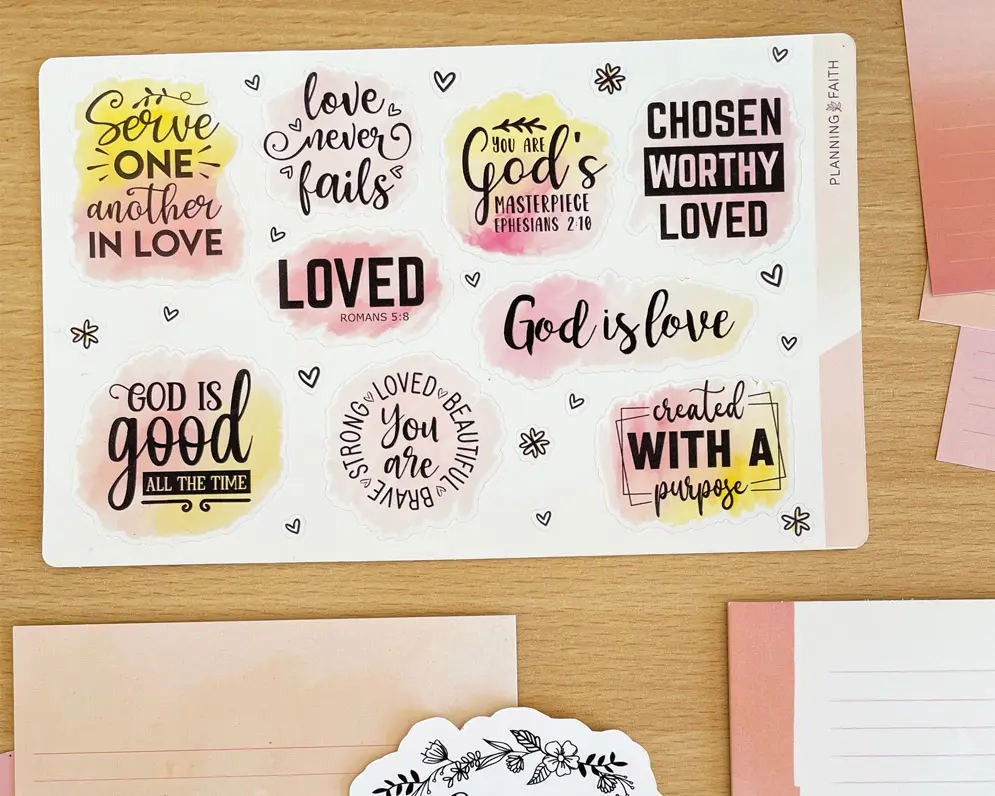 Serve
ONE
another
IN LOVE
love
never
fails
YOU ARE
God's
MASTERPIECE
EPHESIANS 2:10
CHOSEN
WORTHY
LOVED
PLANNING FAITH
LOVED
ROMANS 5:8
God is love
GOD IS
good
ALL THE TIME
STRONG LOVED BEAUTIFUL BRAVE
You
are
created
WITH A
purpose